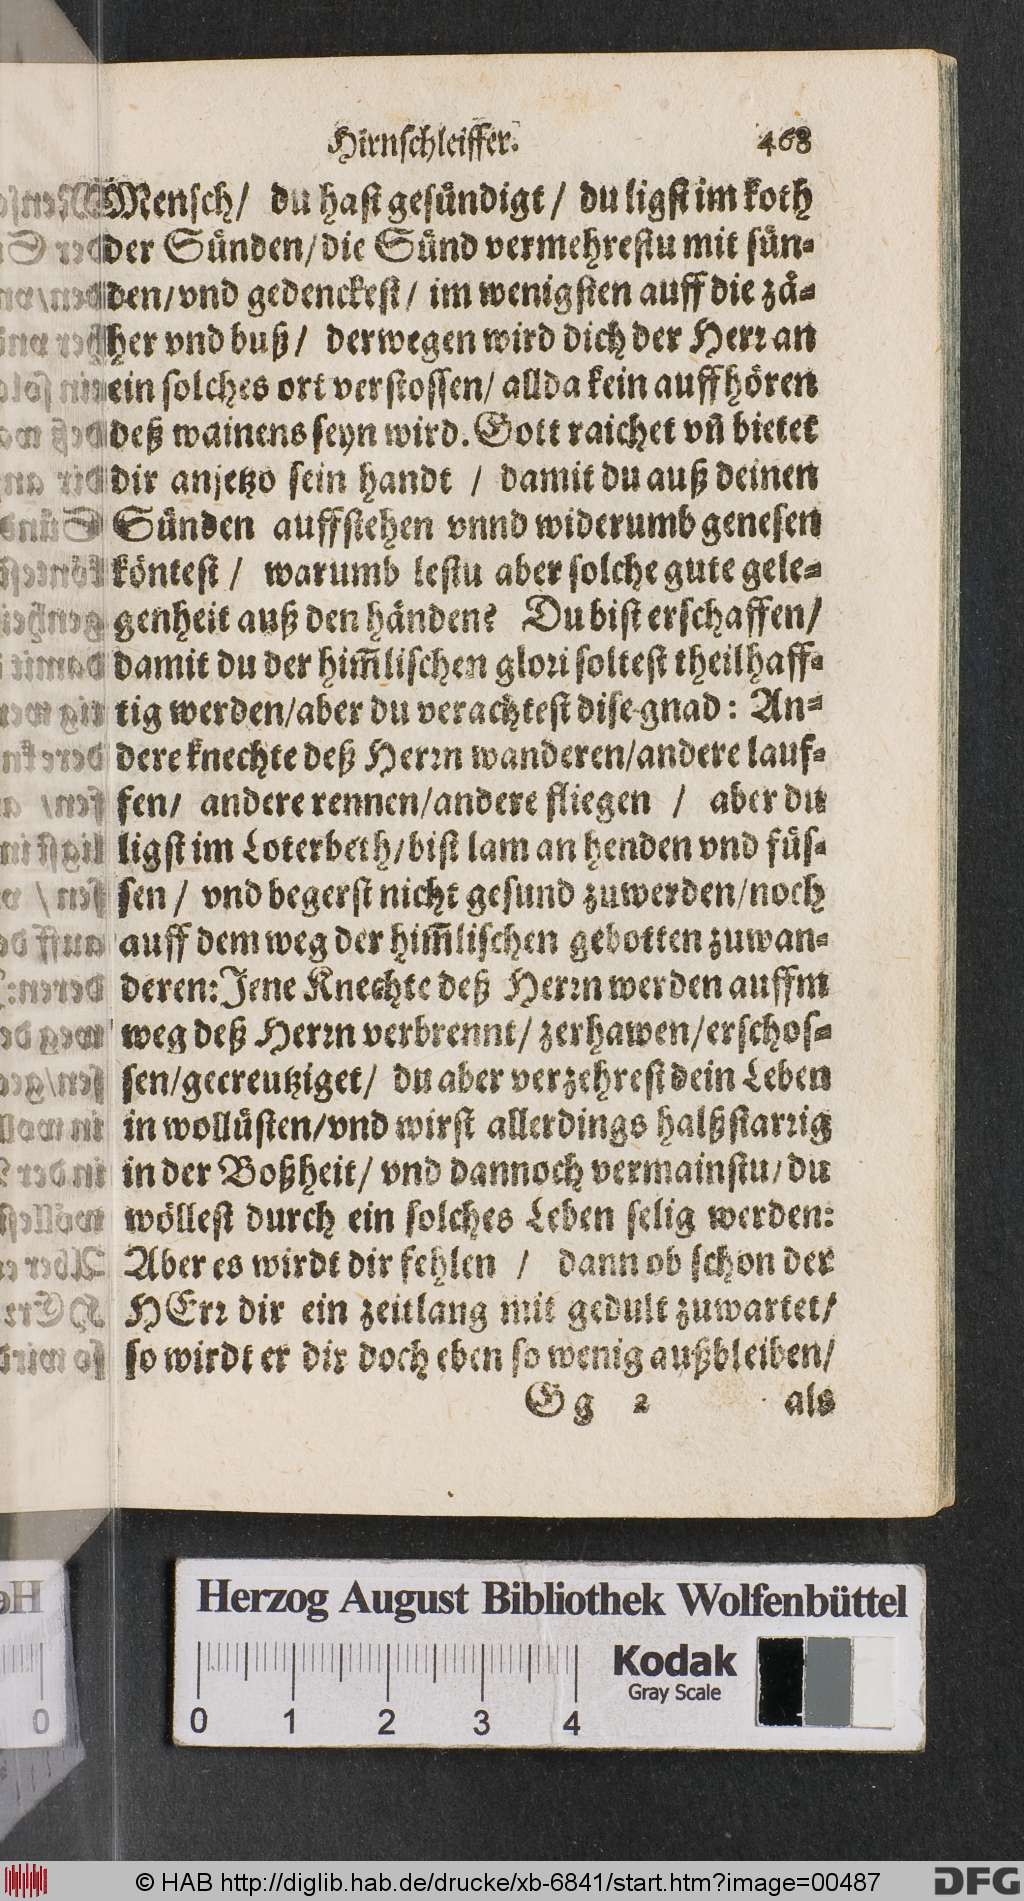 Hirnschleiffer. 468
Mensch/ du hast gesündigt/ du ligst im koth
der Sünden/die Sünd vermehrestu mit sün-
den/vnd gedenckest/ im wenigsten auff die zä-
her vnd buß/ derwegen wird dich der Herr an
ein solches ort verstossen/ allda kein auffhören
deß wainens seyn wird. Gott raichet vñ bietet
dir anjetzo sein handt / damit du auß deinen
Sünden auffstehen vnnd widerumb genesen
köntest/ warumb lestu aber solche gute gele-
genheit auß den händen? Du bist erschaffen/
damit du der him̃lischen glori soltest theilhaff-
tig werden/aber du verachtest dise gnad: An-
dere knechte deß Herrn wanderen/andere lauf-
fen/ andere rennen/andere fliegen / aber du
ligst im Loterbeth/bist lam an henden vnd füs-
sen/ vnd begerst nicht gesund zuwerden/noch
auff dem weg der him̃lischen gebotten zuwan-
deren: Jene Knechte deß Herrn werden auffm
weg deß Herrn verbrennt/ zerhawen/erschos-
sen/gecreutziget/ du aber verzehrest dein Leben
in wollüsten/vnd wirst allerdings halßstarrig
in der Boßheit/ vnd dannoch vermainstu/du
wöllest durch ein solches Leben selig werden:
Aber es wirdt dir fehlen / dann ob schon der
HErr dir ein zeitlang mit gedult zuwartet/
so wirdt er dir doch eben so wenig außbleiben/
Gg 2 als
Herzog August Bibliothek Wolfenbüttel
Kodak
Gray Scale
0 1 2 3 4
© HAB http://diglib.hab.de/drucke/xb-6841/start.htm?image=00487
DFG